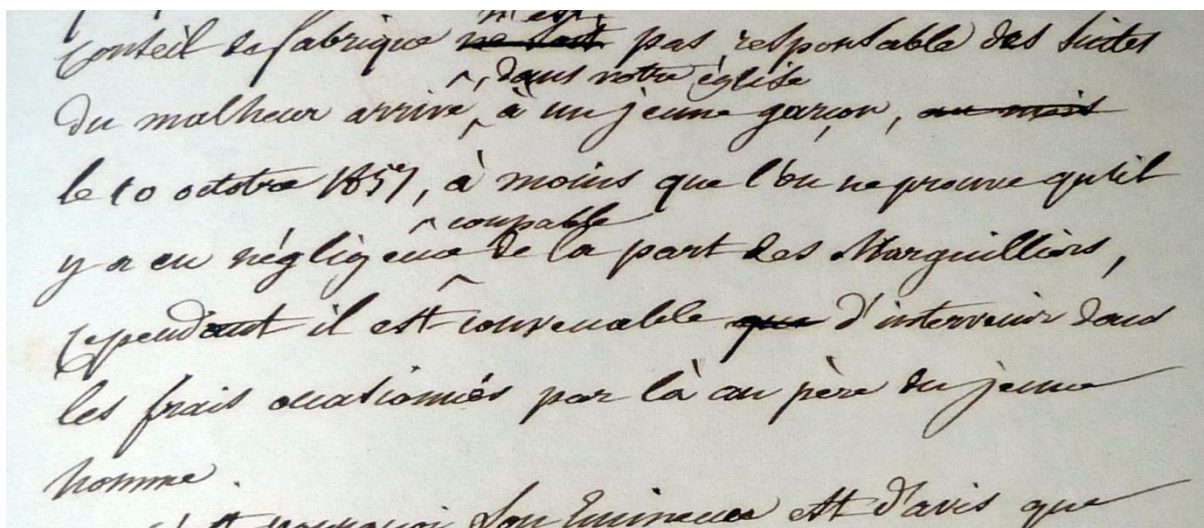 n'est
conseil de fabrique ne sont pas responsable des suites
, dans notre église
du malheur arrivé, à un jeune garçon, au mois
le 10 octobre 1857, à moins que l'on ne prouve qu'il
coupable
y a eu négligence de la part des Marguilliers,
cependant il est convenable que d'intervenir dans
les frais occasionnés par là au père du jeune
homme.
c'est pourquoi Son Eminence est d'avis que